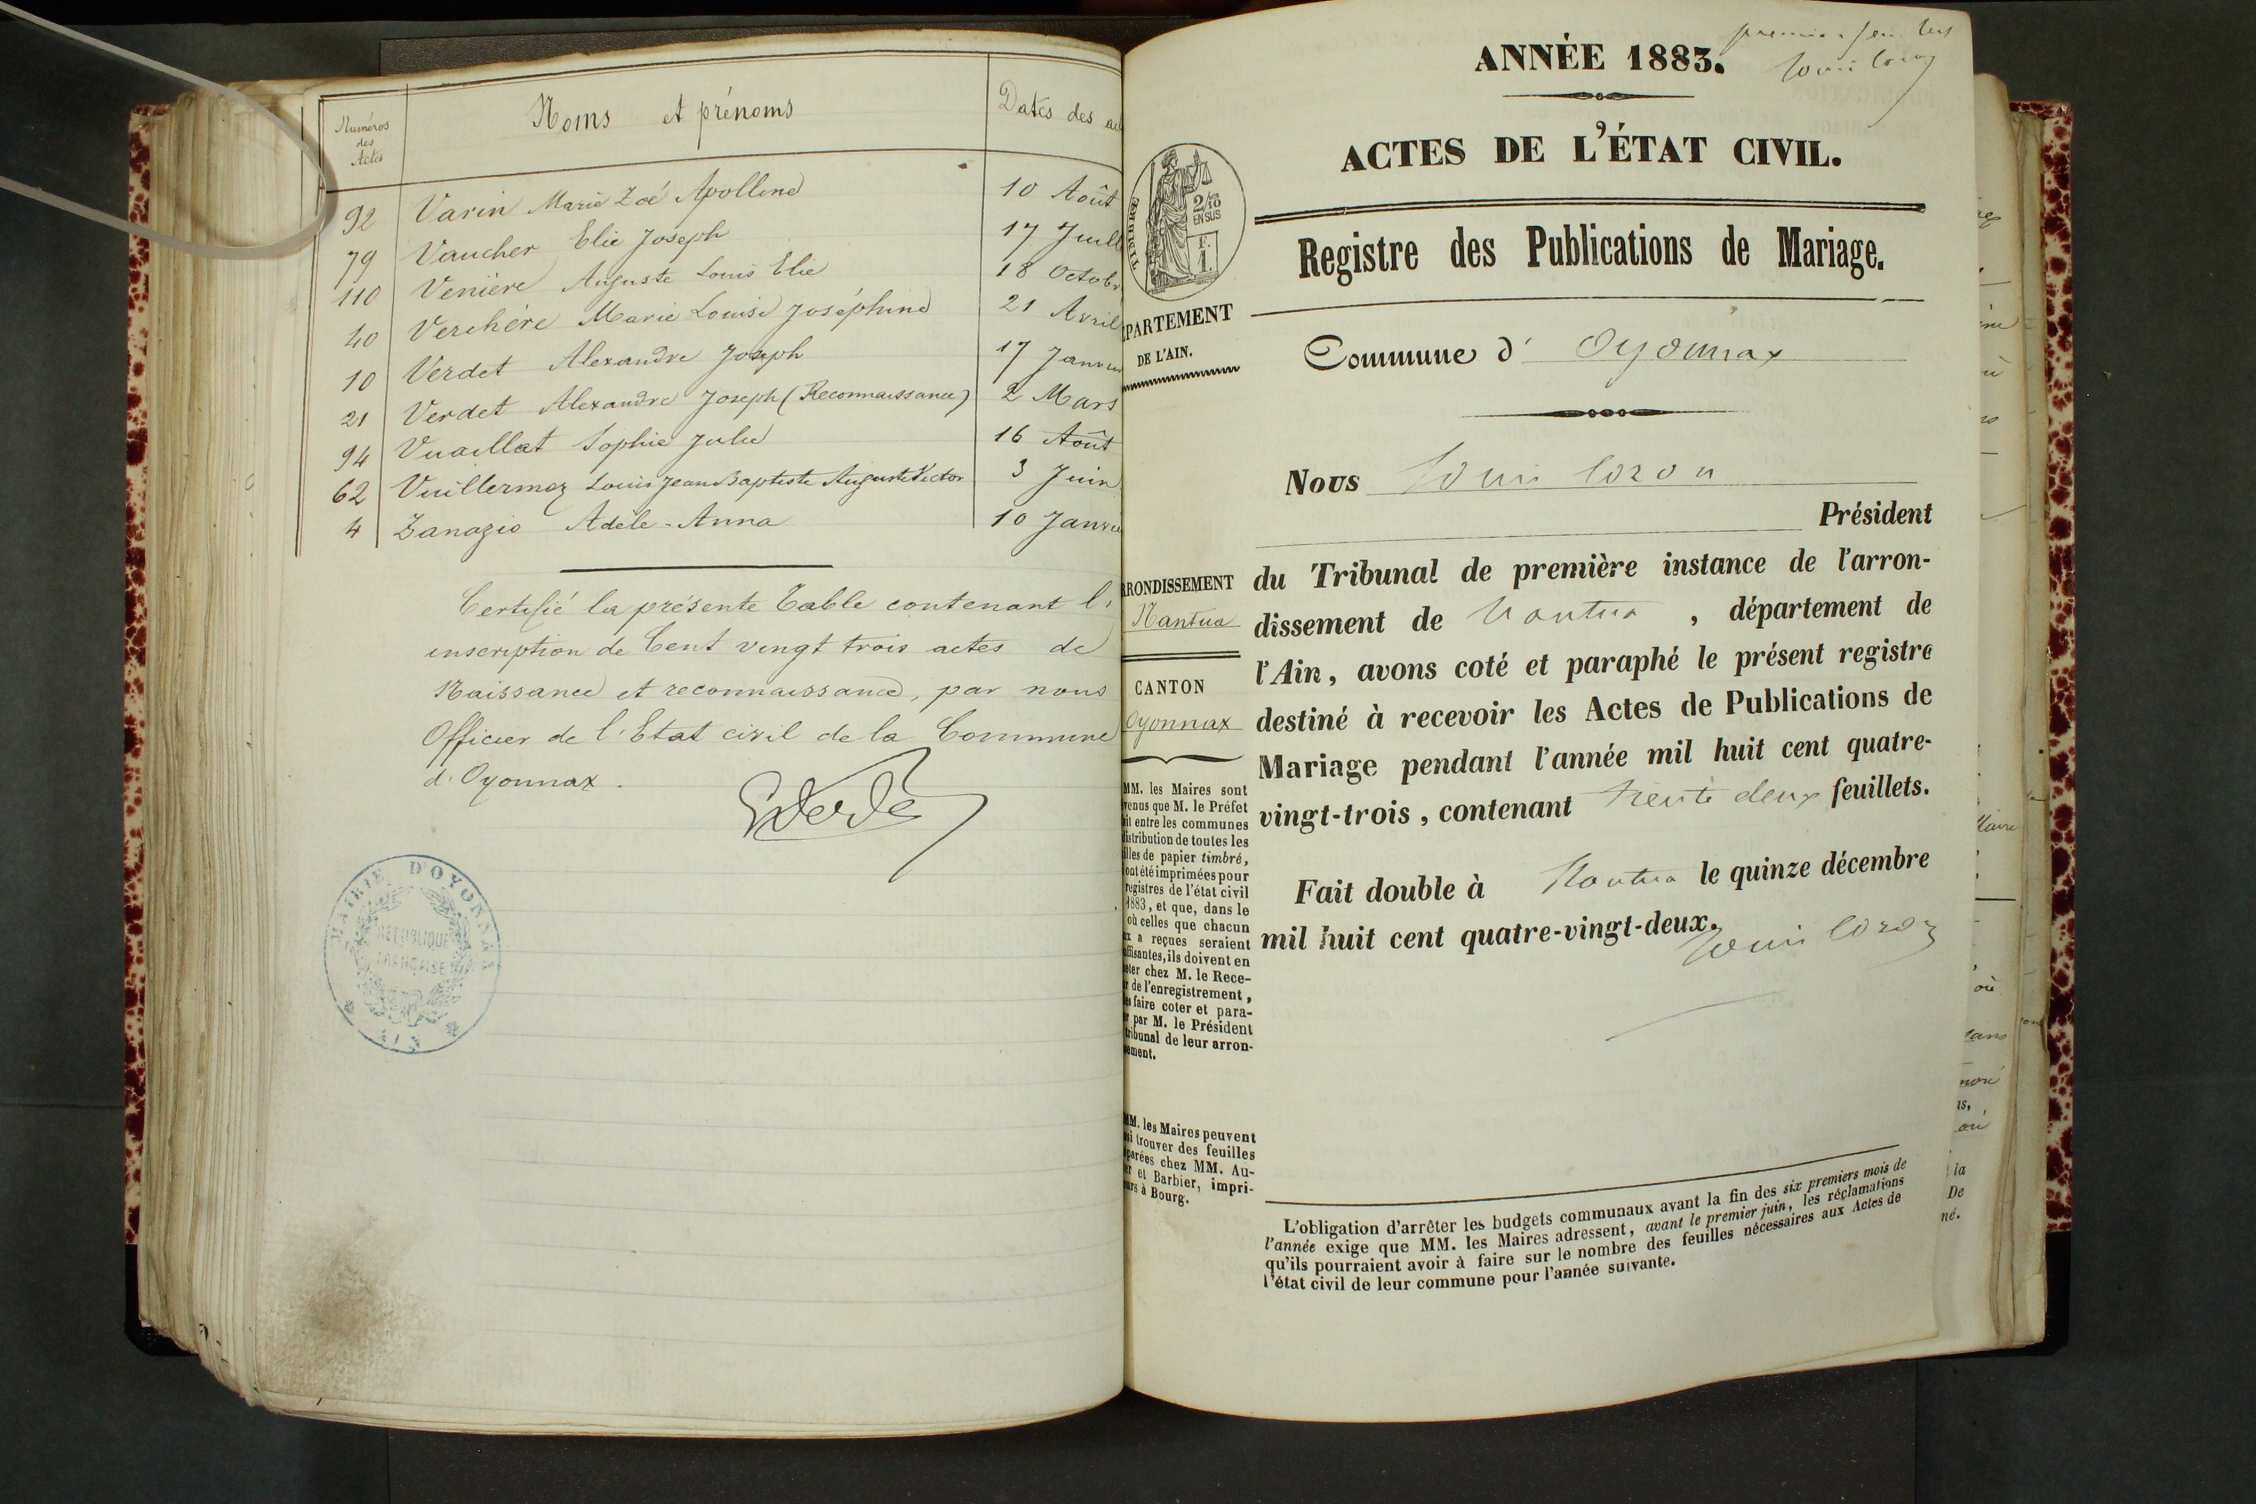 Numéros des Actes
Noms et prénoms
Dates des
92 Varin Marie Zoé Apolline 10 Août
79 Vaucher Elie Joseph 17 Juill
110 Venière Auguste Louis Elie 18 Octob
40 Verchère Marie Louise Joséphine 21 Avril
10 Verdet Alexandre Joseph 17 Janv
21 Verdet Alexandre Joseph (Reconnaissance) 2 Mars
94 Vuaillat Sophie Julie 16 Août
62 Vuillermoz Louis Jean Baptiste Auguste Victor 3 Juin
4 Zanazio Adèle-Anna 10 Janvi
Certifié la présente Table contenant l'
inscription de Cent vingt trois actes de
Naissance et reconnaissance, par nous
Officier de l'Etat civil de la Commune
d'Oyonnax.
MAIRIE D'OYONNAX
RÉPUBLIQUE
FRANÇAISE
AIN
ANNÉE 1883.
ACTES DE L'ÉTAT CIVIL.
TIMBRE
2/10
EN SUS
F.
1.
Registre des Publications de Mariage.
PARTEMENT
DE L'AIN.
Commune d' Oyonnax
Nous
Président
du Tribunal de première instance de l'arron-
dissement de Nantua, département de
l'Ain, avons coté et paraphé le présent registre
destiné à recevoir les Actes de Publications de
Mariage pendant l'année mil huit cent quatre-
vingt-trois, contenant trente deux feuillets.
Fait double à Nantua le quinze décembre
mil huit cent quatre-vingt-deux.
RRONDISSEMENT
Nantua
CANTON
Oyonnax
MM. les Maires sont
venus que M. le Préfet
it entre les communes
distribution de toutes les
illes de papier timbré,
ont été imprimées pour
registres de l'état civil
1883, et que, dans le
où celles que chacun
ux a reçues seraient
uffisantes, ils doivent en
eter chez M. le Rece-
r de l'enregistrement,
es faire coter et para-
r par M. le Président
tribunal de leur arron-
sement.
MM. les Maires peuvent
si trouver des feuilles
parées chez MM. Au-
er et Barbier, impri-
urs à Bourg.
L'obligation d'arrêter les budgets communaux avant la fin des six premiers mois de
l'année exige que MM. les Maires adressent, avant le premier juin, les réclamations
qu'ils pourraient avoir à faire sur le nombre des feuilles nécessaires aux Actes de
l'état civil de leur commune pour l'année suivante.